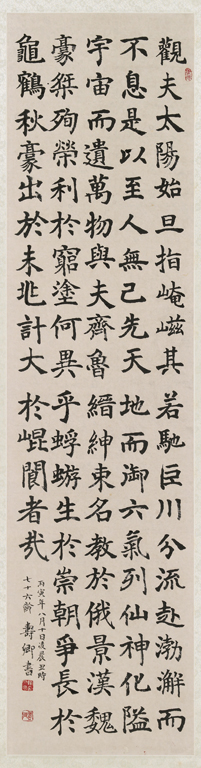 觀夫太陽始旦指崦嵫其若馳巨川分流赴渤澥而
不息是以至人無己先天地而御六氣列仙神化隘
宇宙而遺萬物與夫齊魯縉紳束名教於俄景漢魏
豪桀殉榮利於窮塗何異乎蜉蝣生於崇朝爭長於
龜鶴秋豪出於未兆計大於崐閬者哉
丙寅年八月十日凌晨丑時
七十六齡 壽卿書